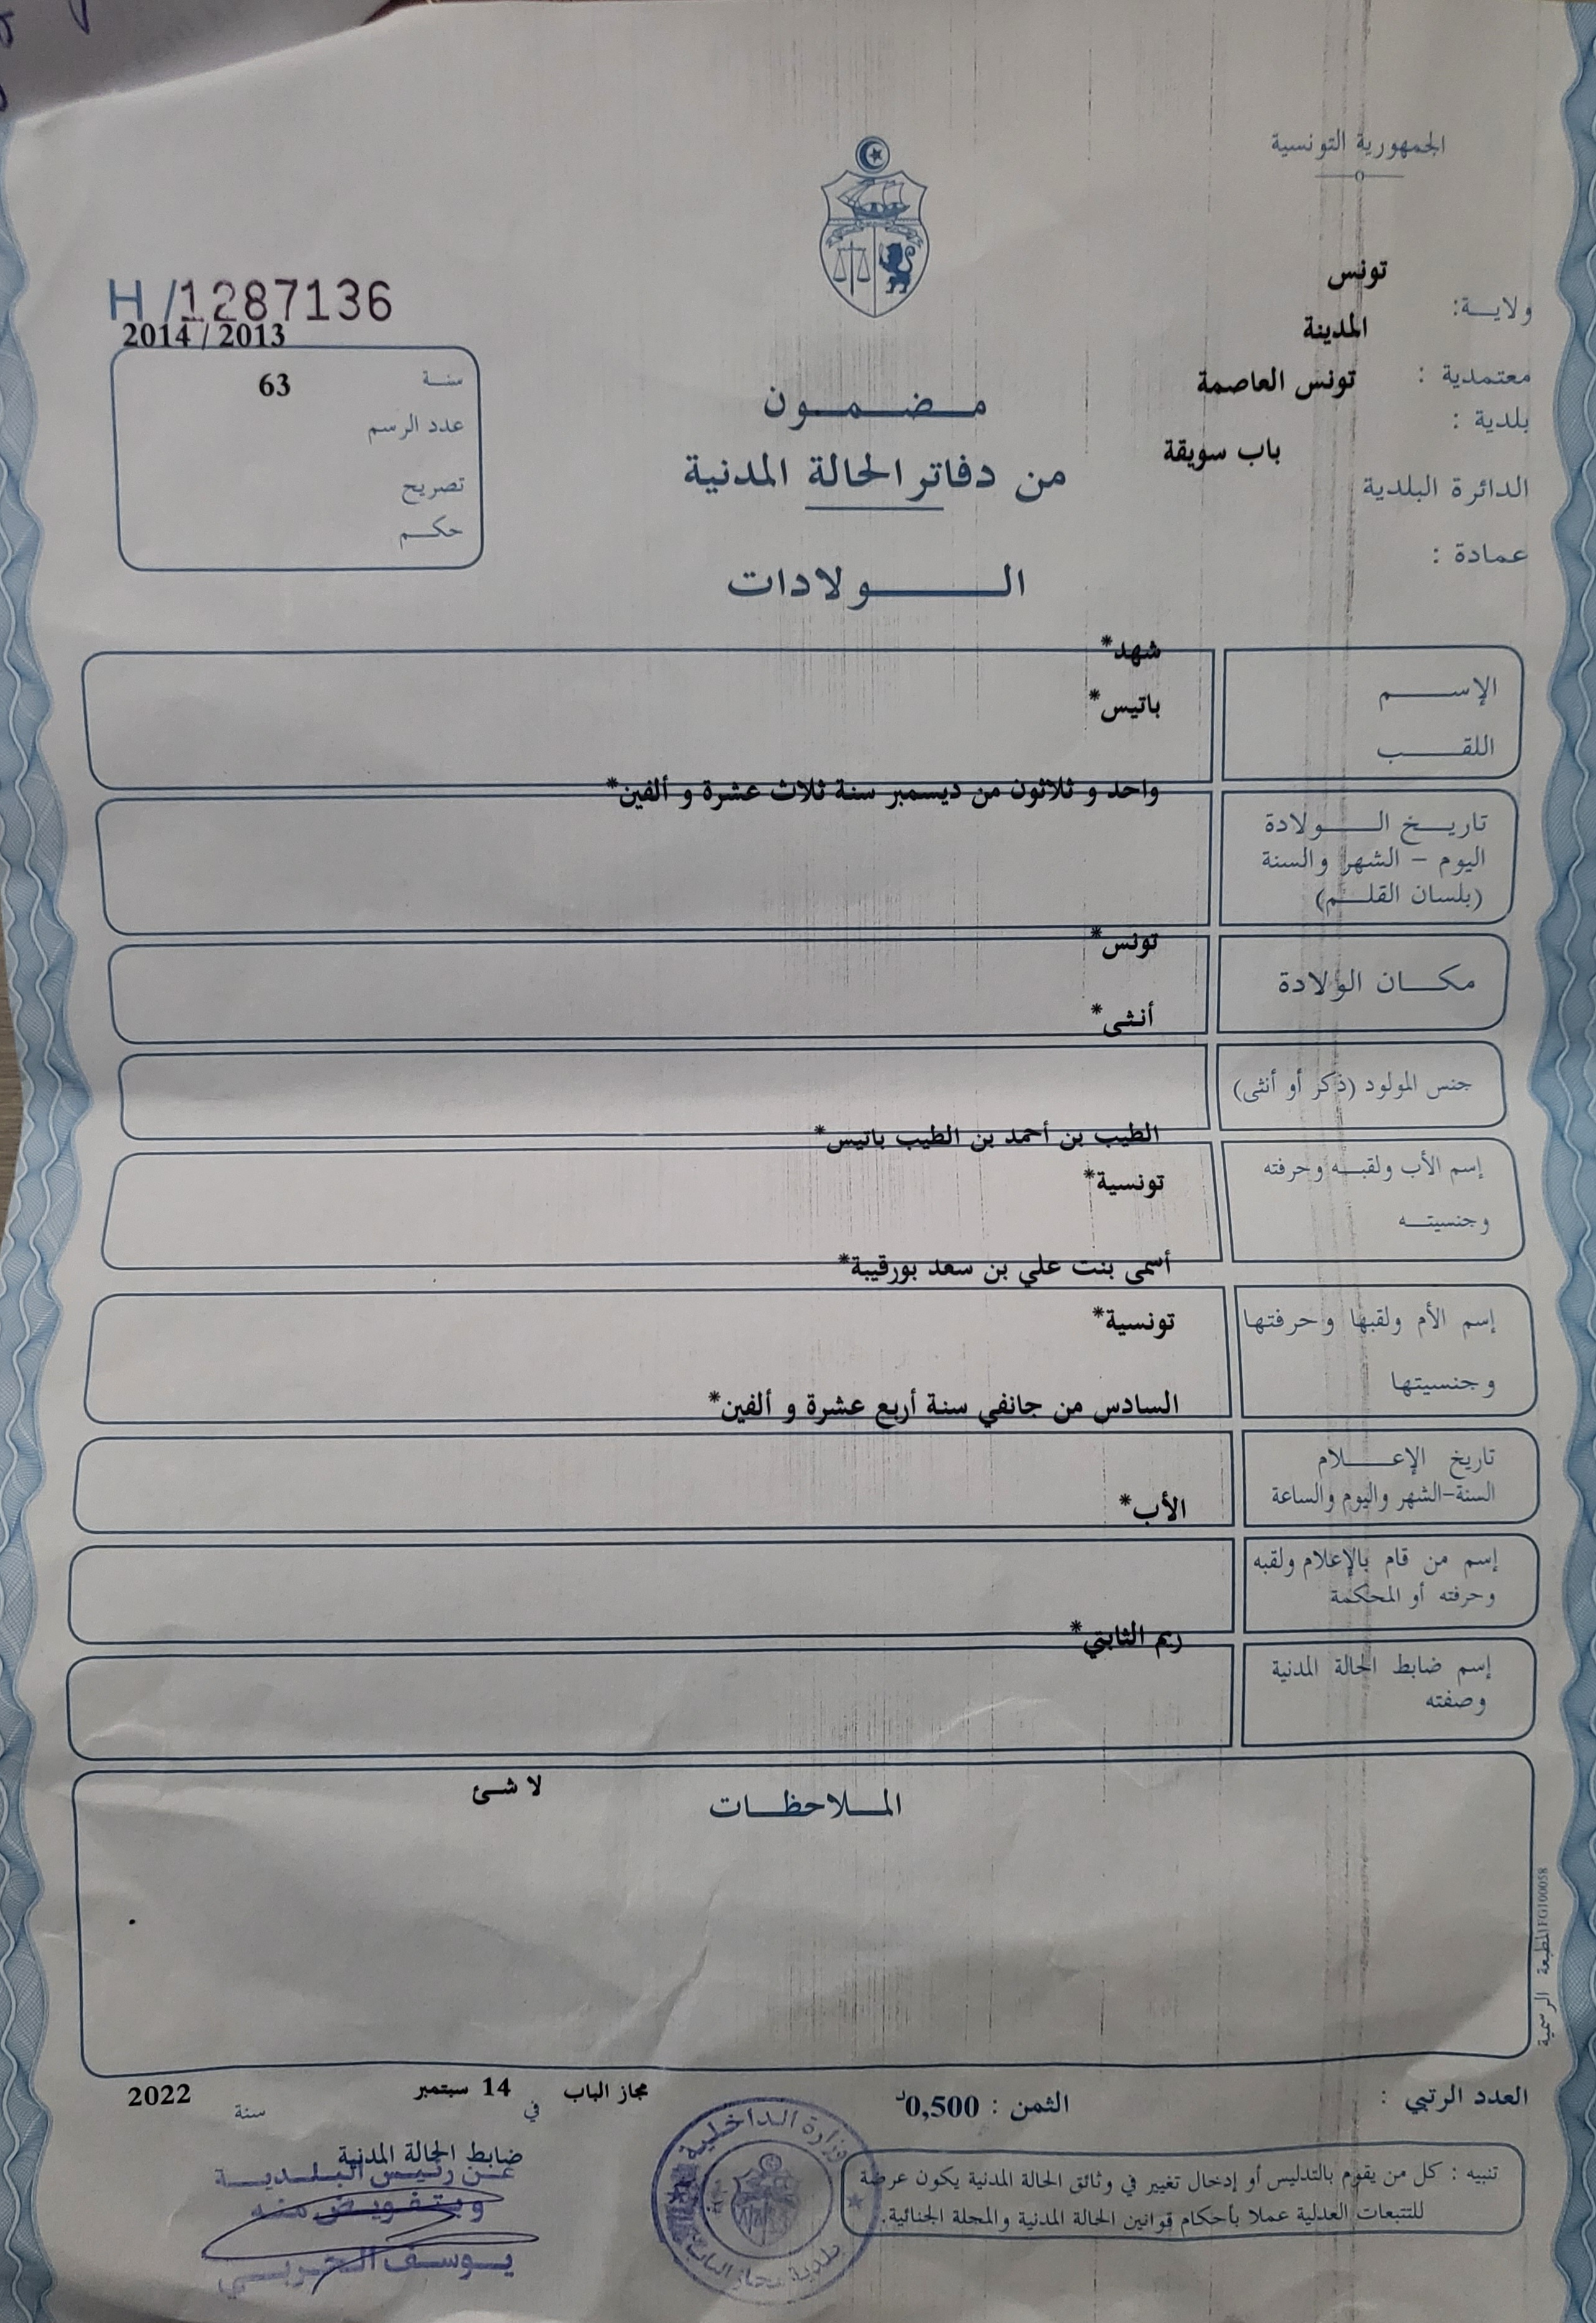 الجمهورية التونسية
ولايـــة: تونس
معتمدية : المدينة
بلدية : تونس العاصمة
الدائرة البلدية باب سويقة
عمادة :
H/1287136
2014 / 2013
سنـة 63
عدد الرسم
تصريح
حكــم
مـضـمـون
من دفاتر الحالة المدنية
الـــولادات
الإســـم شهد*
اللقـــب باتيس*
تاريــخ الـــولادة واحد و ثلاثون من ديسمبر سنة ثلاث عشرة و ألفين*
اليوم – الشهر والسنة
(بلسان القلــم)
مكــان الولادة تونس*
جنس المولود (ذكر أو أنثى) أنثى*
إسم الأب ولقبــه وحرفته الطيب بن أحمد بن الطيب باتيس*
وجنسيتــه تونسية*
إسم الأم ولقبها وحرفتها أسمى بنت علي بن سعد بورقيبة*
وجنسيتها تونسية*
تاريخ الإعـــلام السادس من جانفي سنة أربع عشرة و ألفين*
السنة–الشهر واليوم والساعة
إسم من قام بالإعلام ولقبه الأب*
وحرفته أو المحكمة
إسم ضابط الحالة المدنية ريم الثابتي*
وصفته
الملاحظــات
لا شئ
المطبعة الرسمية FG100058
العدد الرتبي :
الثمن : 0,500د
مجاز الباب في 14 سبتمبر سنة 2022
ضابط الحالة المدنية
عن رئيس البلدية
وبتفويض منه
يوسف الحربي
وزارة الداخلية
بلدية مجاز الباب
تنبيه : كل من يقوم بالتدليس أو إدخال تغيير في وثائق الحالة المدنية يكون عرضة
للتتبعات العدلية عملا بأحكام قوانين الحالة المدنية والمجلة الجنائية.